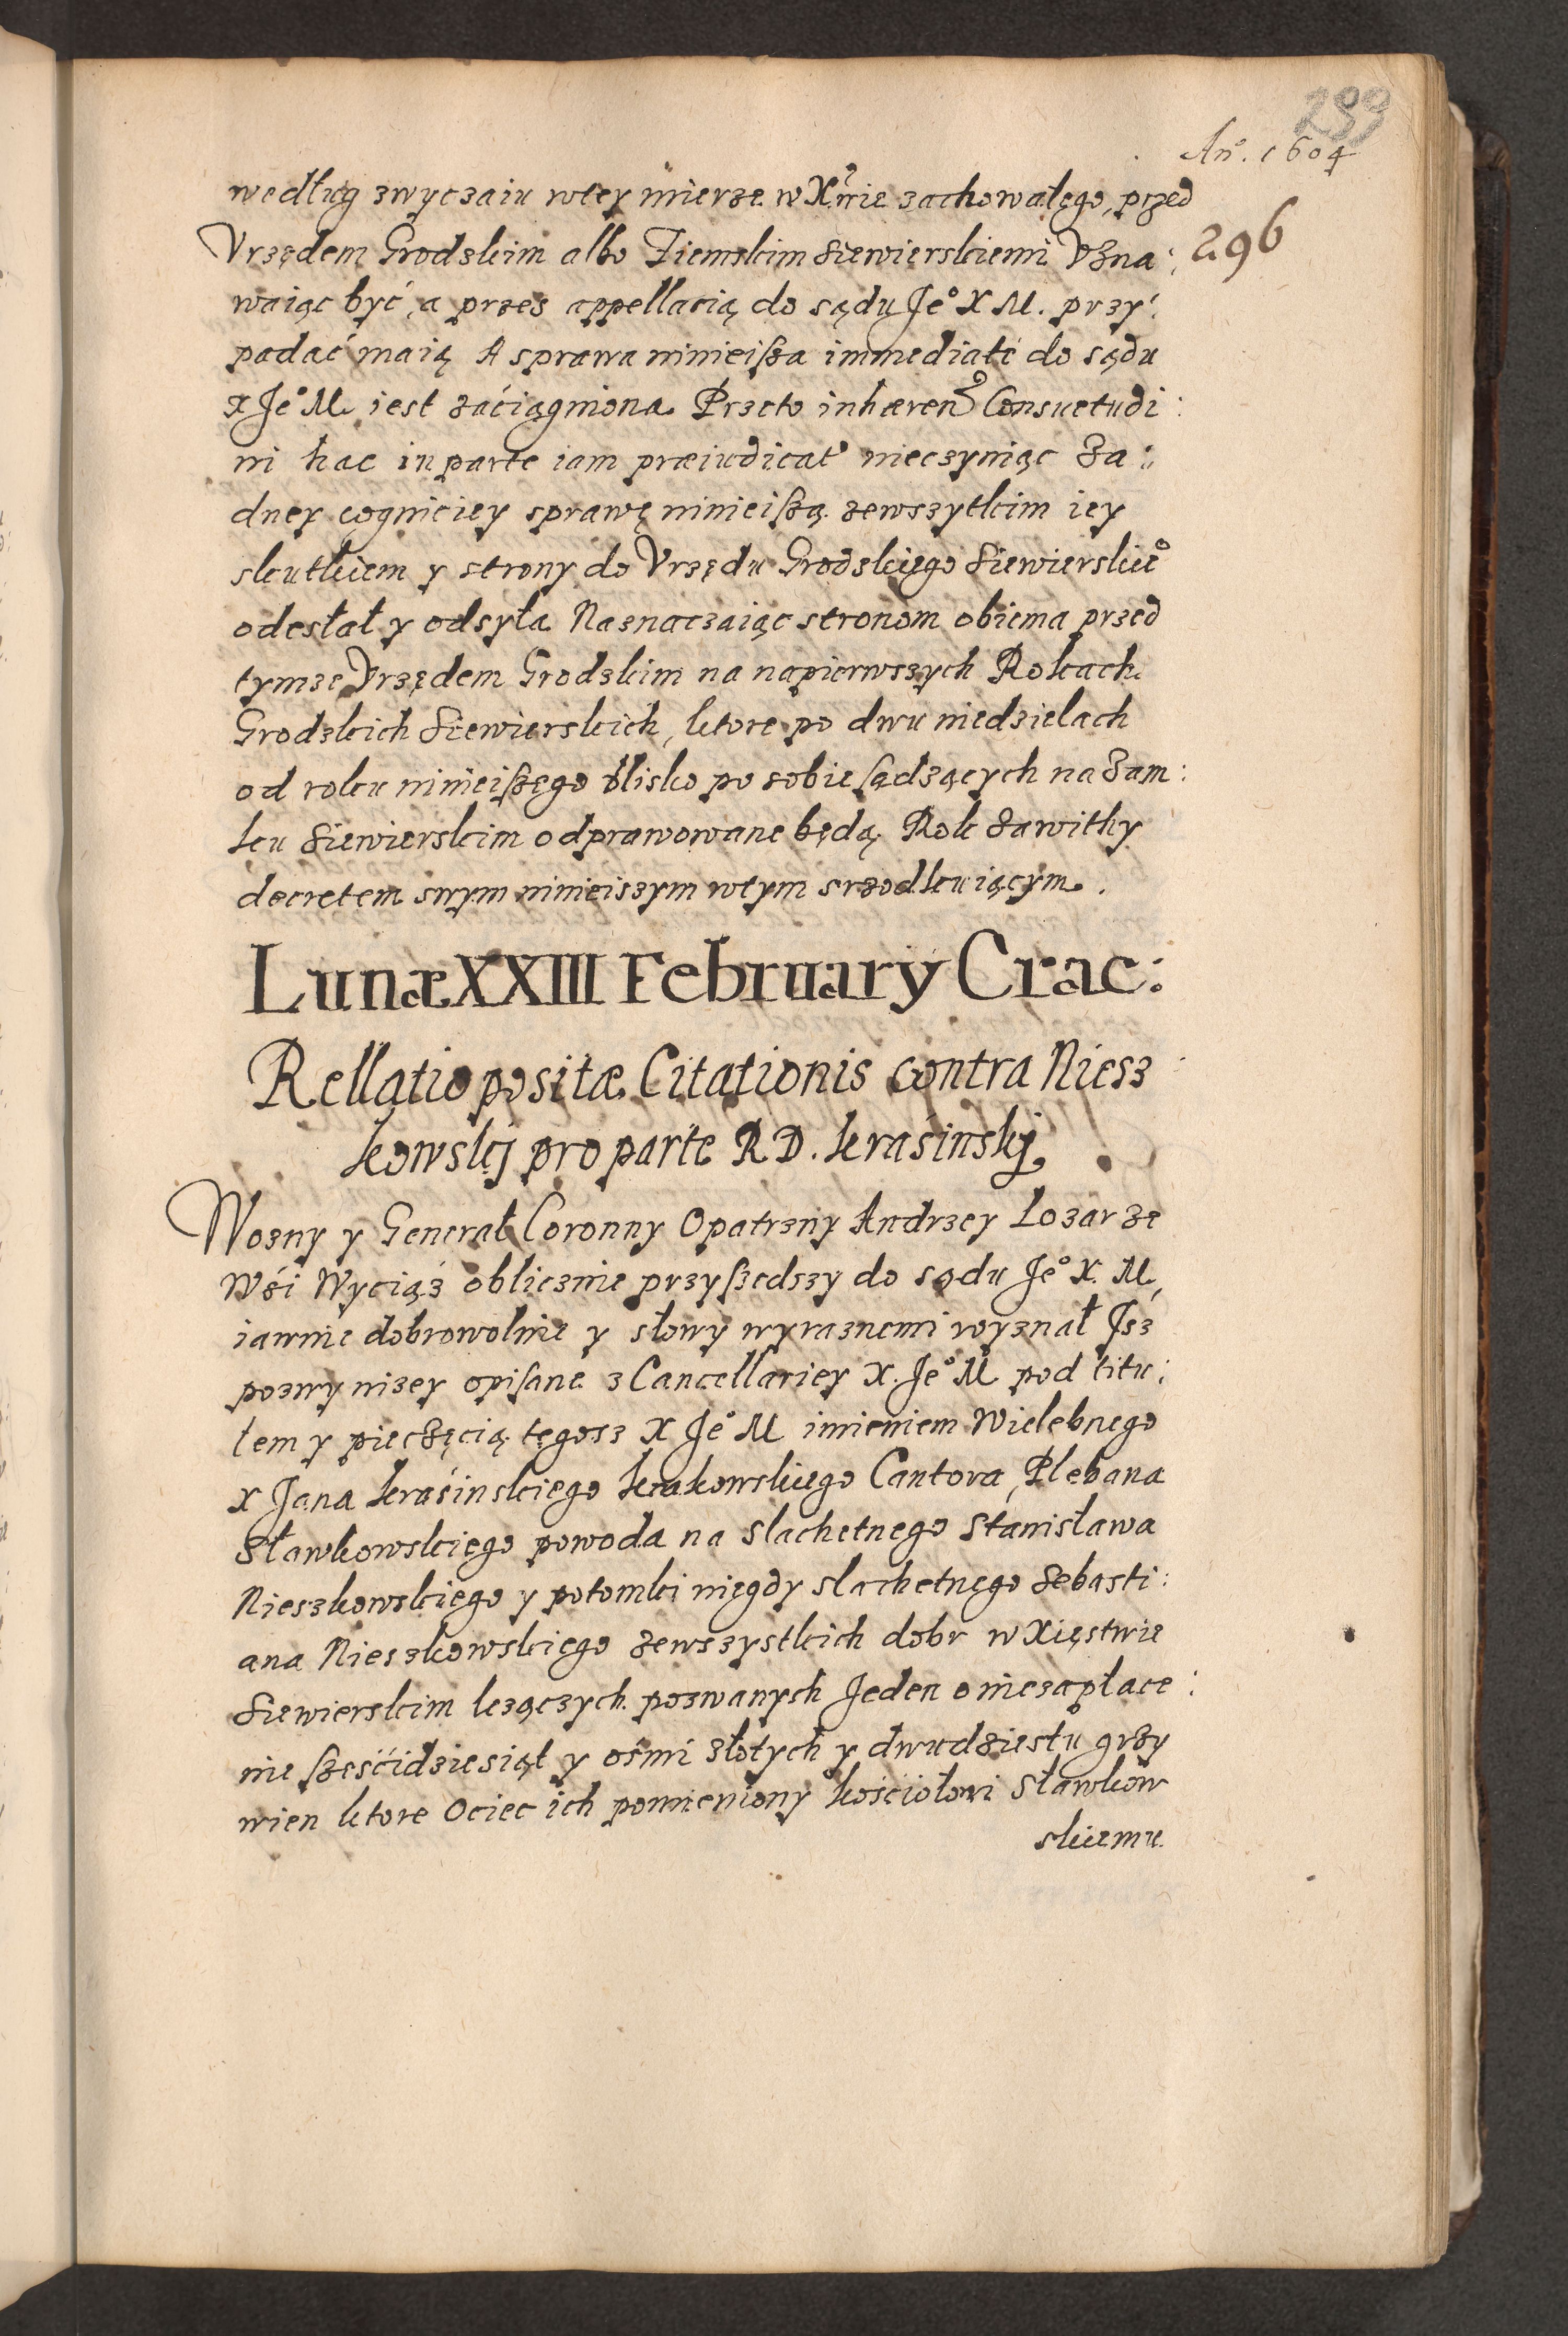 299
Anº. 1604
296
według zwyczaiu wtey mierze w Xᷓnie zachowałego, przed
Vrzędem Grodzkim albo Ziemskim Siewierskiemi Vzna:
waiąc być, a przes appellacią do sądu Jeº X M. przy:
padać maią A sprawa ninieißa immediate do sądu
x Jeº M. iest záciągniona. Przeto inhæren9 Consuetudi:
ni hac in parte iam præiudicat nieczyniąc Ża:
dney cognicicy sprawę ninieißą zewszytkim iey
skutkiem y strony do Vrzędu Grodzkiego Siewierskieº
odesłał y odsyła Naznaczaiąc stronom obiema przed
tymze Vrzędem Grodzkim na napierwszych Rokach
Grodzkich Siewierskich, ktore po dwu niedzielach
od roku ninieißego blisko po sobie sądzących na Zam:
ku Siewierskim odprawowane będą Rok Zawithy
decretem swym ninieiszym wtym srzodkuiącym.
Lunæ XXIII February Crac:
Rellatio positæ Citationis contra Niesz
kowskj pro parte R D. Kraśinskj.
Wozny y Generał Coronny Opatrzny Andrzey Lozar ze
Wśi Wyciąż oblicznie przyszedszy do sądu Jeº X. M,
iawnie dobrowolnie y słowy wyraznemi wyznał Jsz
pozwy nizey opisane z Cancellariey X. Jeº M pod titu:
łem y pieczęcią tegosz X Jeº M imieniem Wielebnego
x Jana Kraśinskiego Krakowskiego Cantora, Plebana
Sławkowskiego powoda na slachetnego Stanisława
Nieszkowskiego y potomki niegdy slachetnego Sebasti:
ana Nieszkowskiego zewszystkich dobr w Xięstwie
Siewierskim lezączych pozwanych Jeden o niezapłace:
nie sześćidziesiąt y ośmi złotych y dwudziestu grzy
wien ktore Ociec ich pomieniony kościołowi Sławkow
skiemu